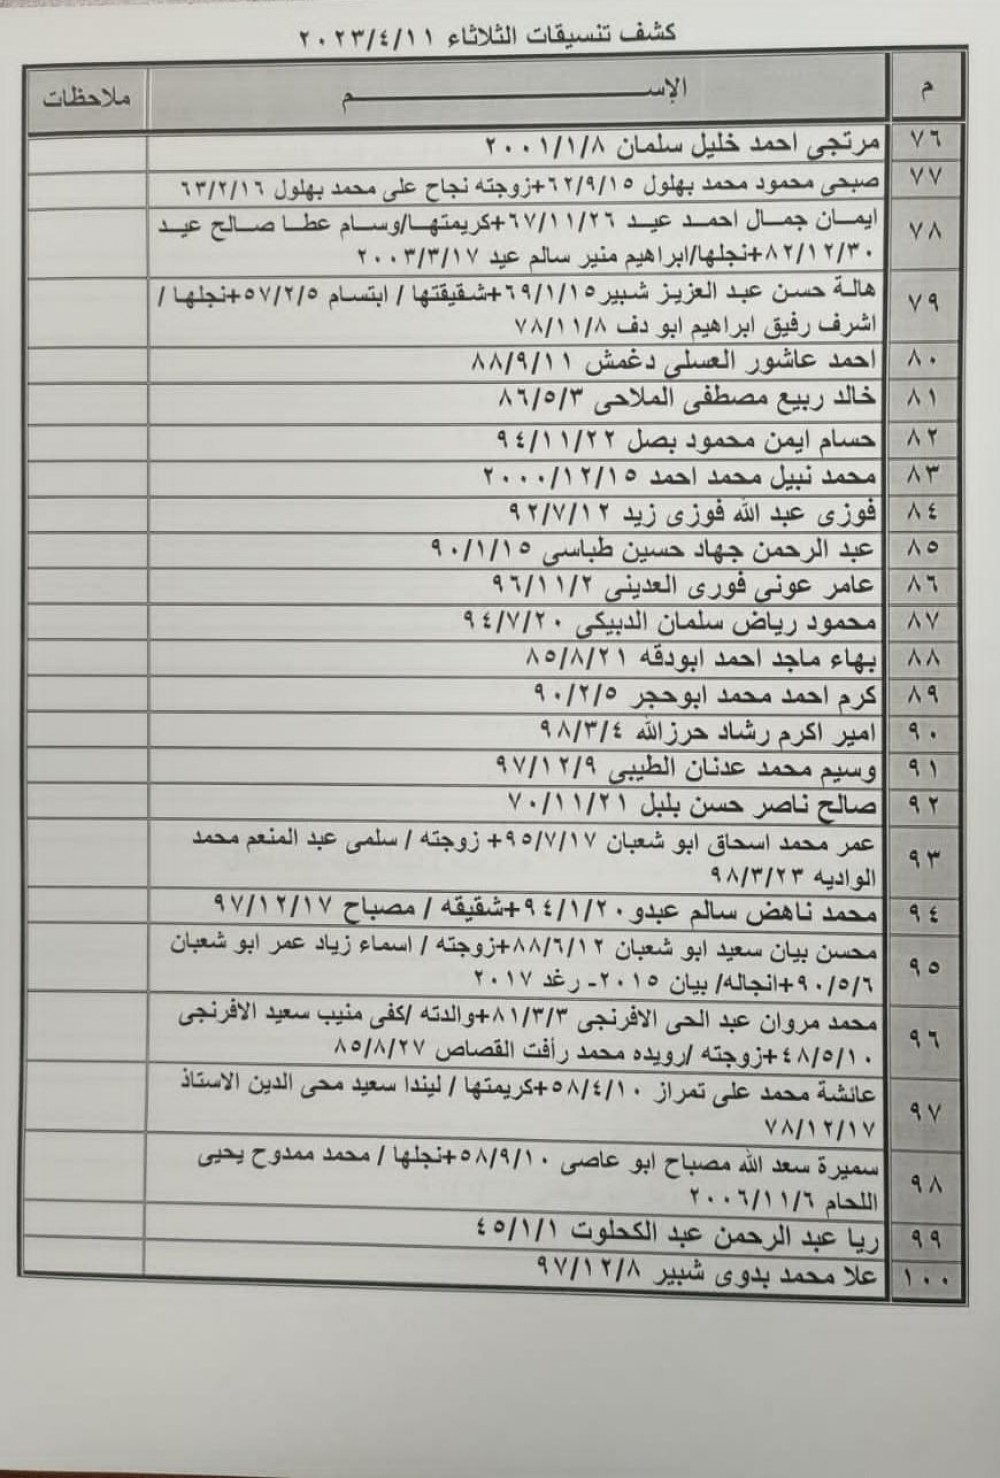 كشف تنسيقات الثلاثاء ٢٠٢٣/٤/١١
م الإســـــــــم ملاحظات
٧٦ مرتجى احمد خليل سلمان ٢٠٠١/١/٨
٧٧ صبحى محمود محمد بهلول ٦٢/٩/١٥+زوجته نجاح على محمد بهلول ٦٣/٢/١٦
٧٨ ايمـــان جمـــال احمـــد عيـــد ٦٧/١١/٢٦+كريمتهـــا/وســـام عطـــا صـــالح عيـــد
٨٢/١٢/٣٠+نجلها/ابراهيم منير سالم عيد ٢٠٠٣/٣/١٧
٧٩ هالـة حسـن عبـد العزيـز شـبير٦٩/١/١٥+شـقيقتها / ابتسـام ٥٧/٢/٥+نجلهـا /
اشرف رفيق ابراهيم ابو دف ٧٨/١١/٨
٨٠ احمد عاشور العسلى دغمش ٨٨/٩/١١
٨١ خالد ربيع مصطفى الملاحى ٨٦/٥/٣
٨٢ حسام ايمن محمود بصل ٩٤/١١/٢٢
٨٣ محمد نبيل محمد احمد ٢٠٠٠/١٢/١٥
٨٤ فوزى عبد الله فوزى زيد ٩٢/٧/١٢
٨٥ عبد الرحمن جهاد حسين طباسى ٩٠/١/١٥
٨٦ عامر عونى فورى العدينى ٩٦/١١/٢
٨٧ محمود رياض سلمان الدبيكى ٩٤/٧/٢٠
٨٨ بهاء ماجد احمد ابودقه ٨٥/٨/٢١
٨٩ كرم احمد محمد ابوحجر ٩٠/٢/٥
٩٠ امير اكرم رشاد حرزالله ٩٨/٣/٤
٩١ وسيم محمد عدنان الطيبى ٩٧/١٢/٩
٩٢ صالح ناصر حسن بلبل ٧٠/١١/٢١
٩٣ عمر محمد اسحاق ابو شعبان ٩٥/٧/١٧+ زوجته / سلمى عبد المنعم محمد
الواديه ٩٨/٣/٢٣
٩٤ محمد ناهض سالم عبدو٩٤/١/٢٠+شقيقه / مصباح ٩٧/١٢/١٧
٩٥ محسن بيان سعيد ابو شعبان ٨٨/٦/١٢+زوجته / اسماء زياد عمر ابو شعبان
٩٠/٥/٦+انجاله/ بيان ٢٠١٥- رغد ٢٠١٧
٩٦ محمد مروان عبد الحى الافرنجى ٨١/٣/٣+والدته /كفى منيب سعيد الافرنجى
٤٨/٥/١٠+زوجته /رويده محمد رأفت القصاص ٨٥/٨/٢٧
٩٧ عائشة محمد على تمراز ٥٨/٤/١٠+كريمتها / ليندا سعيد محى الدين الاستاذ
٧٨/١٢/١٧
٩٨ سميرة سعد الله مصباح ابو عاصى ٥٨/٩/١٠+نجلها / محمد ممدوح يحيى
اللحام ٢٠٠٦/١١/٦
٩٩ ريا عبد الرحمن عبد الكحلوت ٤٥/١/١
١٠٠ علا محمد بدوى شبير ٩٧/١٢/٨